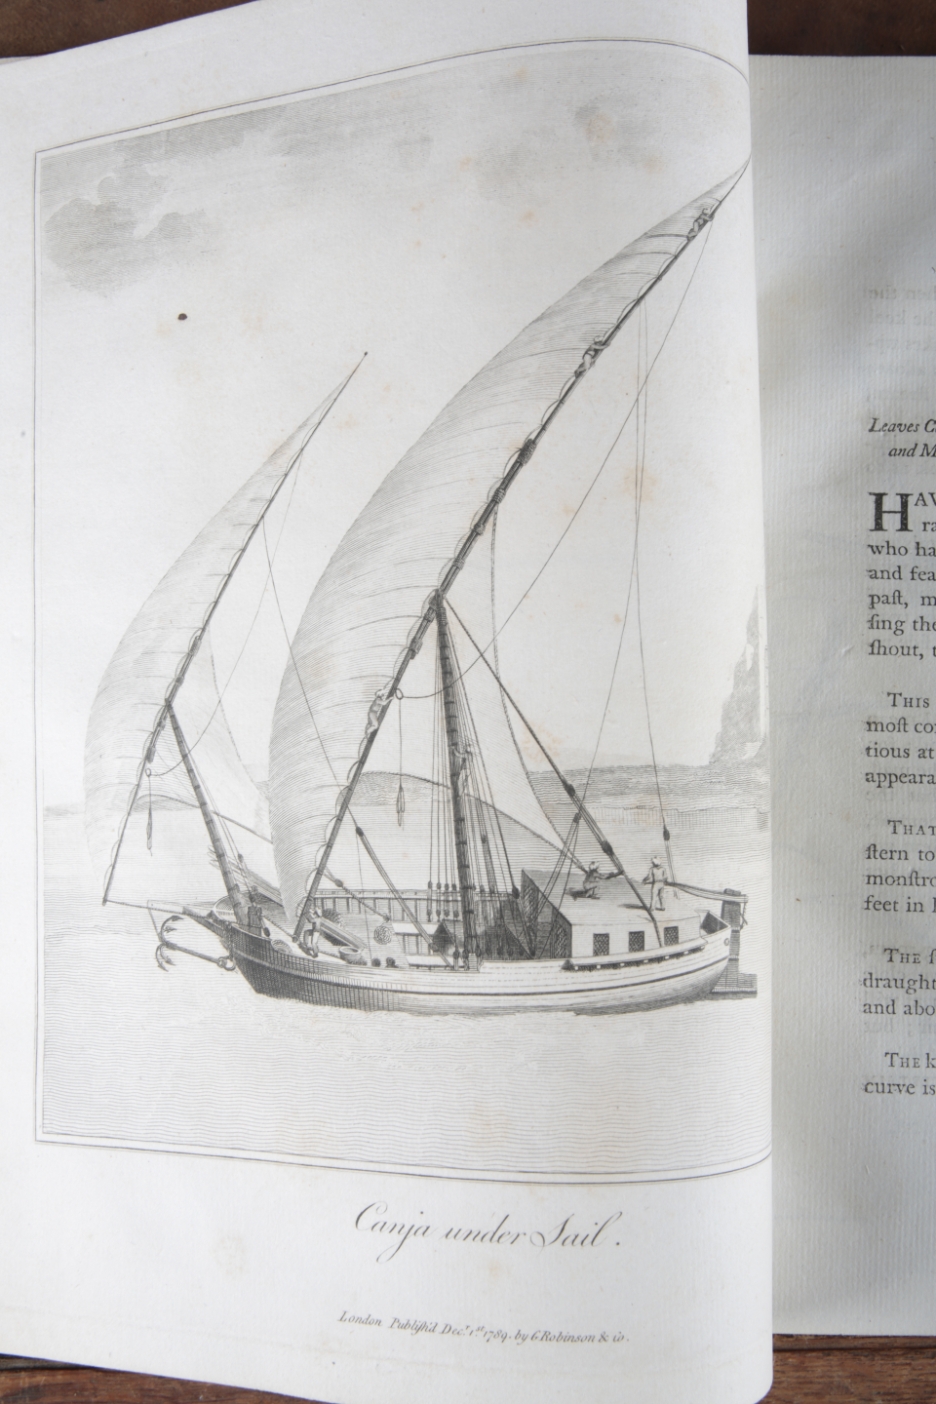 Canja under Sail.
London Publish'd Decr. 1st 1789. by G. Robinson & Co.
Leaves C
and M
HAV
ra
who ha
and fea
paſt, m
ſing the
ſhout, t
THIS
moſt co
tious at
appeara
THAT
ſtern to
monſtro
feet in
THE ſ
draught
and abo
THE k
curve is